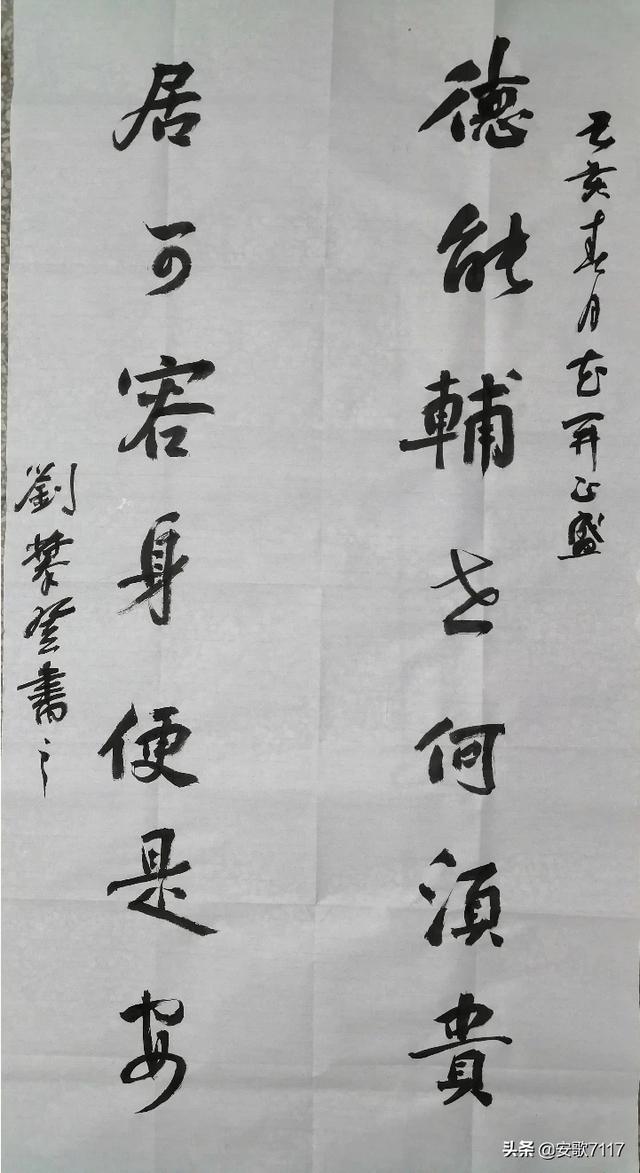 己亥春月花开正盛
德能輔世何須貴
居可容身便是安
劉 書之
头条 @安歌7117